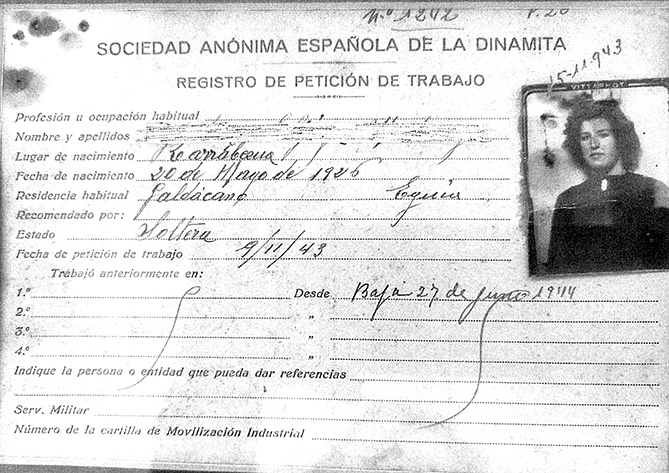 n.º 1242
15-11-943
SOCIEDAD ANÓNIMA ESPAÑOLA DE LA DINAMITA
REGISTRO DE PETICIÓN DE TRABAJO
Profesión u ocupación habitual
Nombre y apellidos
Lugar de nacimiento
Fecha de nacimiento 20 de Mayo de 1926
Residencia habitual Galdácano
Recomendado por:
Estado Soltera
Fecha de petición de trabajo 9/11/43
Trabajó anteriormente en:
1.º Desde Baja 27 de Junio 1944
2.º „
3.º „
4.º „
Indique la persona o entidad que pueda dar referencias
Serv. Militar
Número de la cartilla de Movilización Industrial